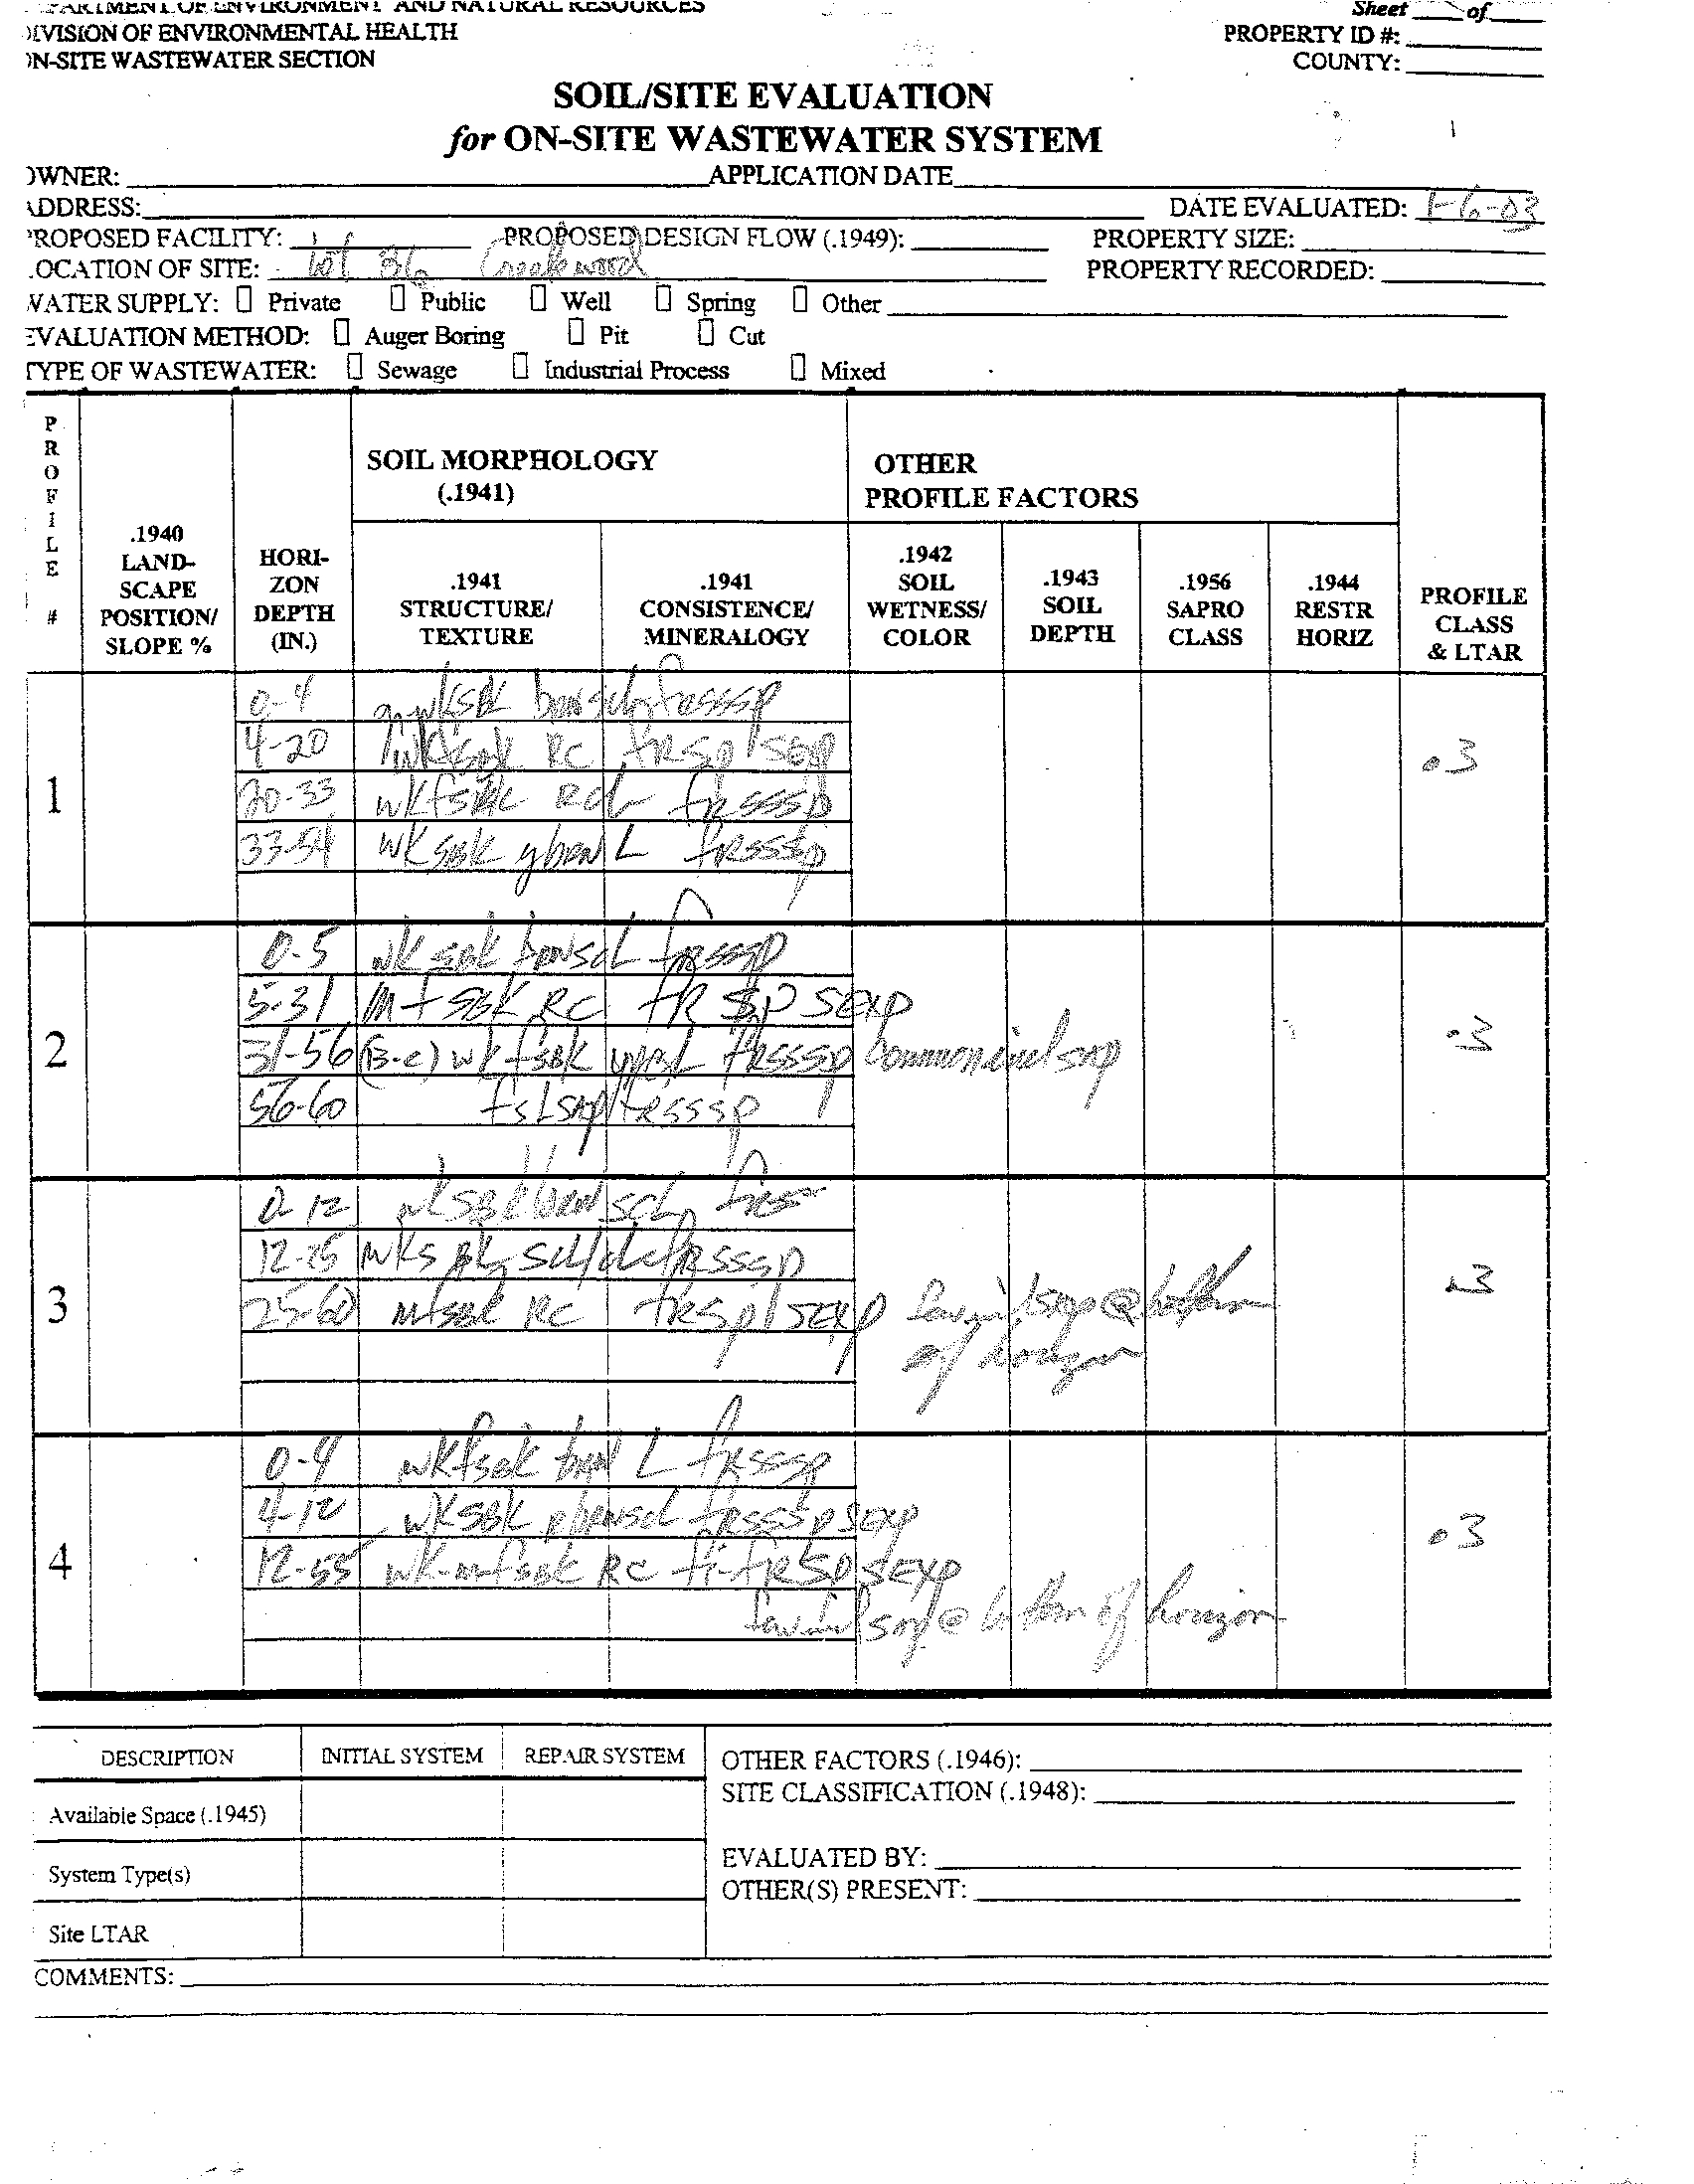 DEPARTMENT OF ENVIRONMENT AND NATURAL RESOURCES
DIVISION OF ENVIRONMENTAL HEALTH
ON-SITE WASTEWATER SECTION
Sheet ___ of ___
PROPERTY ID #:
COUNTY:
SOIL/SITE EVALUATION
for ON-SITE WASTEWATER SYSTEM
OWNER:
APPLICATION DATE
ADDRESS:
DATE EVALUATED:
PROPOSED FACILITY:
PROPOSED DESIGN FLOW (.1949):
PROPERTY SIZE:
LOCATION OF SITE: Lot 36
PROPERTY RECORDED:
WATER SUPPLY: Private Public Well Spring Other
EVALUATION METHOD: Auger Boring Pit Cut
TYPE OF WASTEWATER: Sewage Industrial Process Mixed
PROFILE #
.1940 LAND-SCAPE POSITION/ SLOPE %
HORI-ZON DEPTH (IN.)
SOIL MORPHOLOGY (.1941)
.1941 STRUCTURE/ TEXTURE
.1941 CONSISTENCE/ MINERALOGY
OTHER PROFILE FACTORS
.1942 SOIL WETNESS/ COLOR
.1943 SOIL DEPTH
.1956 SAPRO CLASS
.1944 RESTR HORIZ
PROFILE CLASS & LTAR
1
0-4
4-20 RC frsp SEXP
20-33 wkfsbk RCL frsssp
33-54 wksbk ybrn L frsssp
.3
2
0-5 wk sbk brnscl frsssp
5-31 mfsbk RC fr sp SEXP
31-56 (B-C) wkfsbk frsssp
56-60 fsLsap frsssp
.3
3
0-12 wksbk brn scl
12-25 wksbk scl/cl frsssp
25-60 mfsbk RC frsp SEXP @ bottom
of horizon
.3
4
0-4 wkfsbk brn L frsssp
4-12 wksbk scl frsssp SEXP
12-55 wk-mfsbk RC fi-frsp SEXP
sap @ bottom of horizon
.3
DESCRIPTION INITIAL SYSTEM REPAIR SYSTEM
Available Space (.1945)
System Type(s)
Site LTAR
OTHER FACTORS (.1946):
SITE CLASSIFICATION (.1948):
EVALUATED BY:
OTHER(S) PRESENT:
COMMENTS: